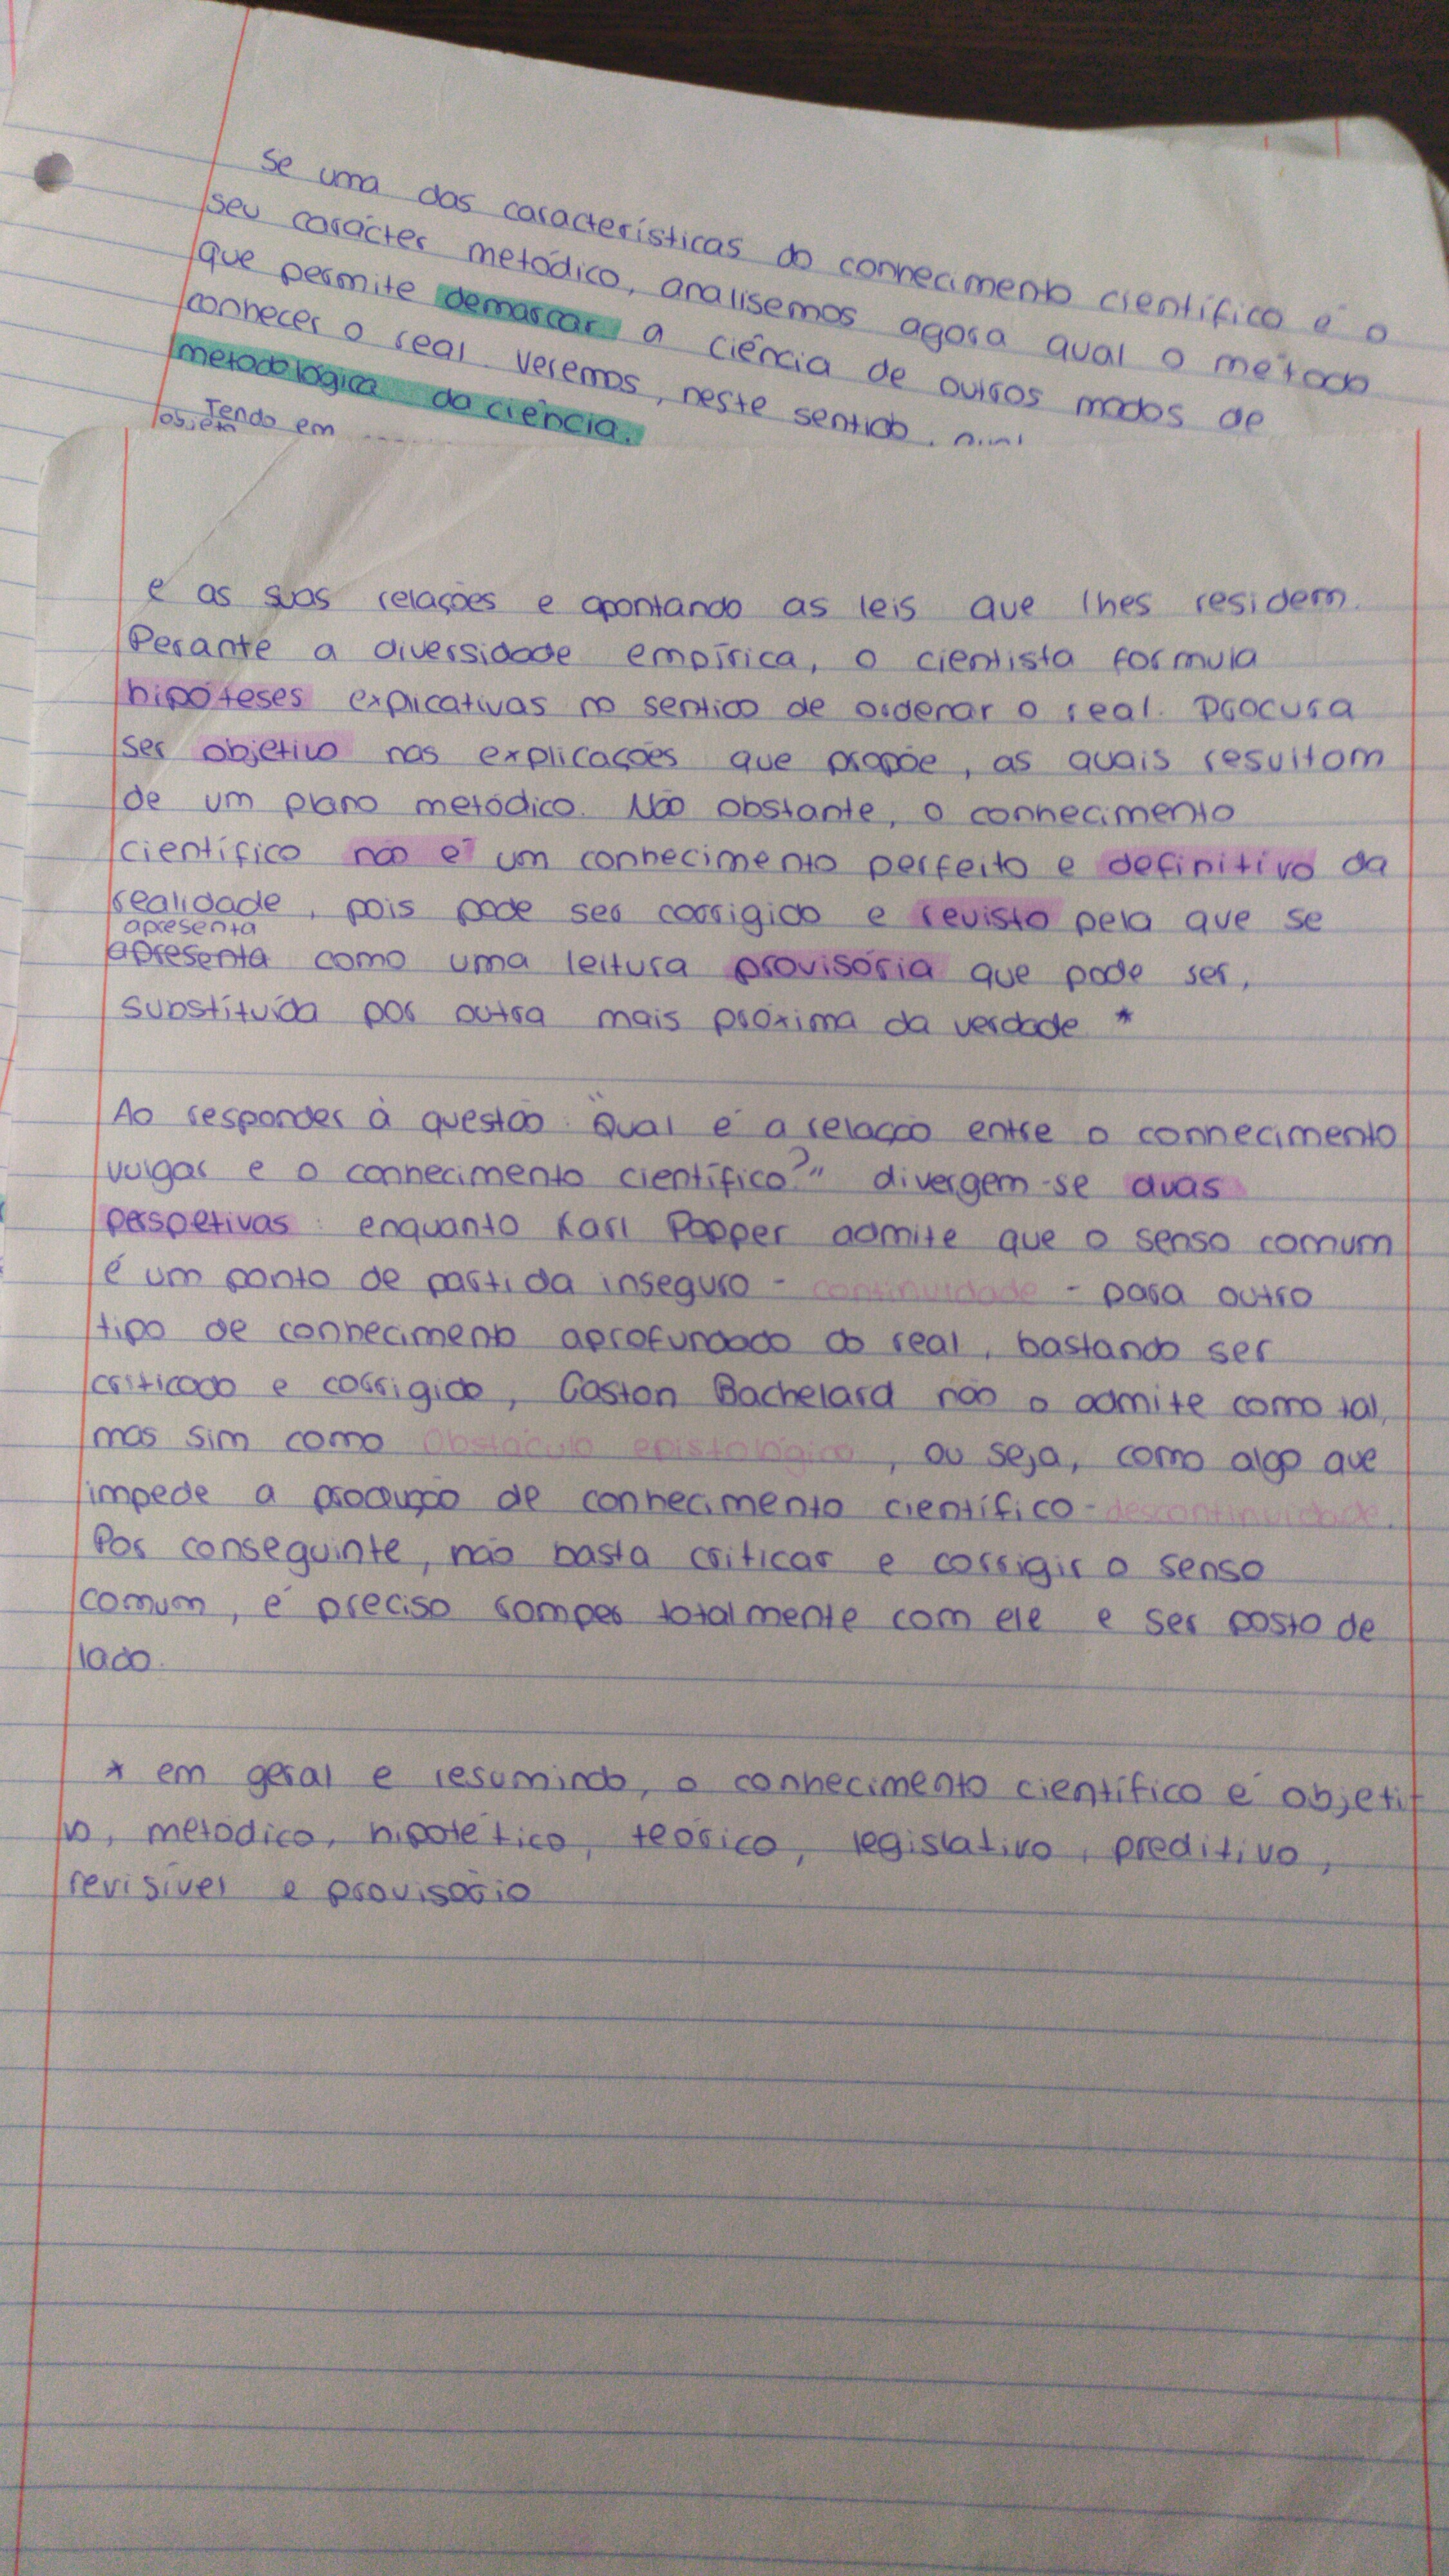 Se uma das características do conhecimento científico é o
seu carácter metódico, analisemos agora qual o método
que permite demarcar a ciência de outros modos de
conhecer o real. Veremos, neste sentido,
metodológica da ciência.
Tendo em
e as suas relações e apontando as leis que lhes residem.
Perante a diversidade empírica, o cientista formula
hipóteses explicativas no sentido de ordenar o real. Procura
ser objetivo nas explicações que propõe, as quais resultam
de um plano metódico. Não obstante, o conhecimento
científico não é um conhecimento perfeito e definitivo da
realidade, pois pode ser corrigido e revisto pela que se
apresenta
apresenta como uma leitura provisória que pode ser,
substítuída por outra mais próxima da verdade *
Ao responder à questão: "Qual é a relação entre o conhecimento
vulgar e o conhecimento científico?" divergem-se duas
perspetivas: enquanto Karl Popper admite que o senso comum
é um ponto de partida inseguro - continuidade - para outro
tipo de conhecimento aprofundado do real, bastando ser
criticado e corrigido, Gaston Bachelard não o admite como tal,
mas sim como obstáculo epistológico, ou seja, como algo que
impede a produção de conhecimento científico - descontinuidade.
Por conseguinte, não basta criticar e corrigir o senso
comum, é preciso romper totalmente com ele e ser posto de
lado.
* em geral e resumindo, o conhecimento científico é objeti
vo, metódico, hipotético, teórico, legislativo, preditivo,
revisível e provisório